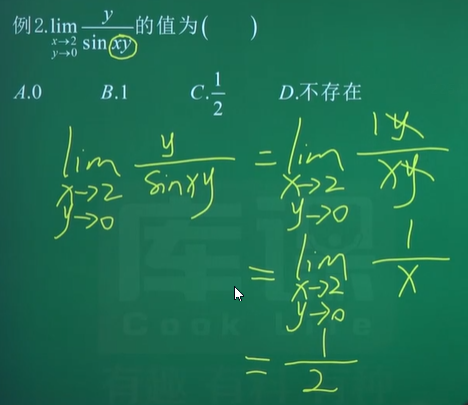 例2. lim_{x→2, y→0} y/sin xy 的值为( )
A.0 B.1 C.1/2 D.不存在
lim_{x→2, y→0} y/sinxy = lim_{x→2, y→0} 1y/xy
= lim_{x→2, y→0} 1/x
= 1/2
库课
Cook